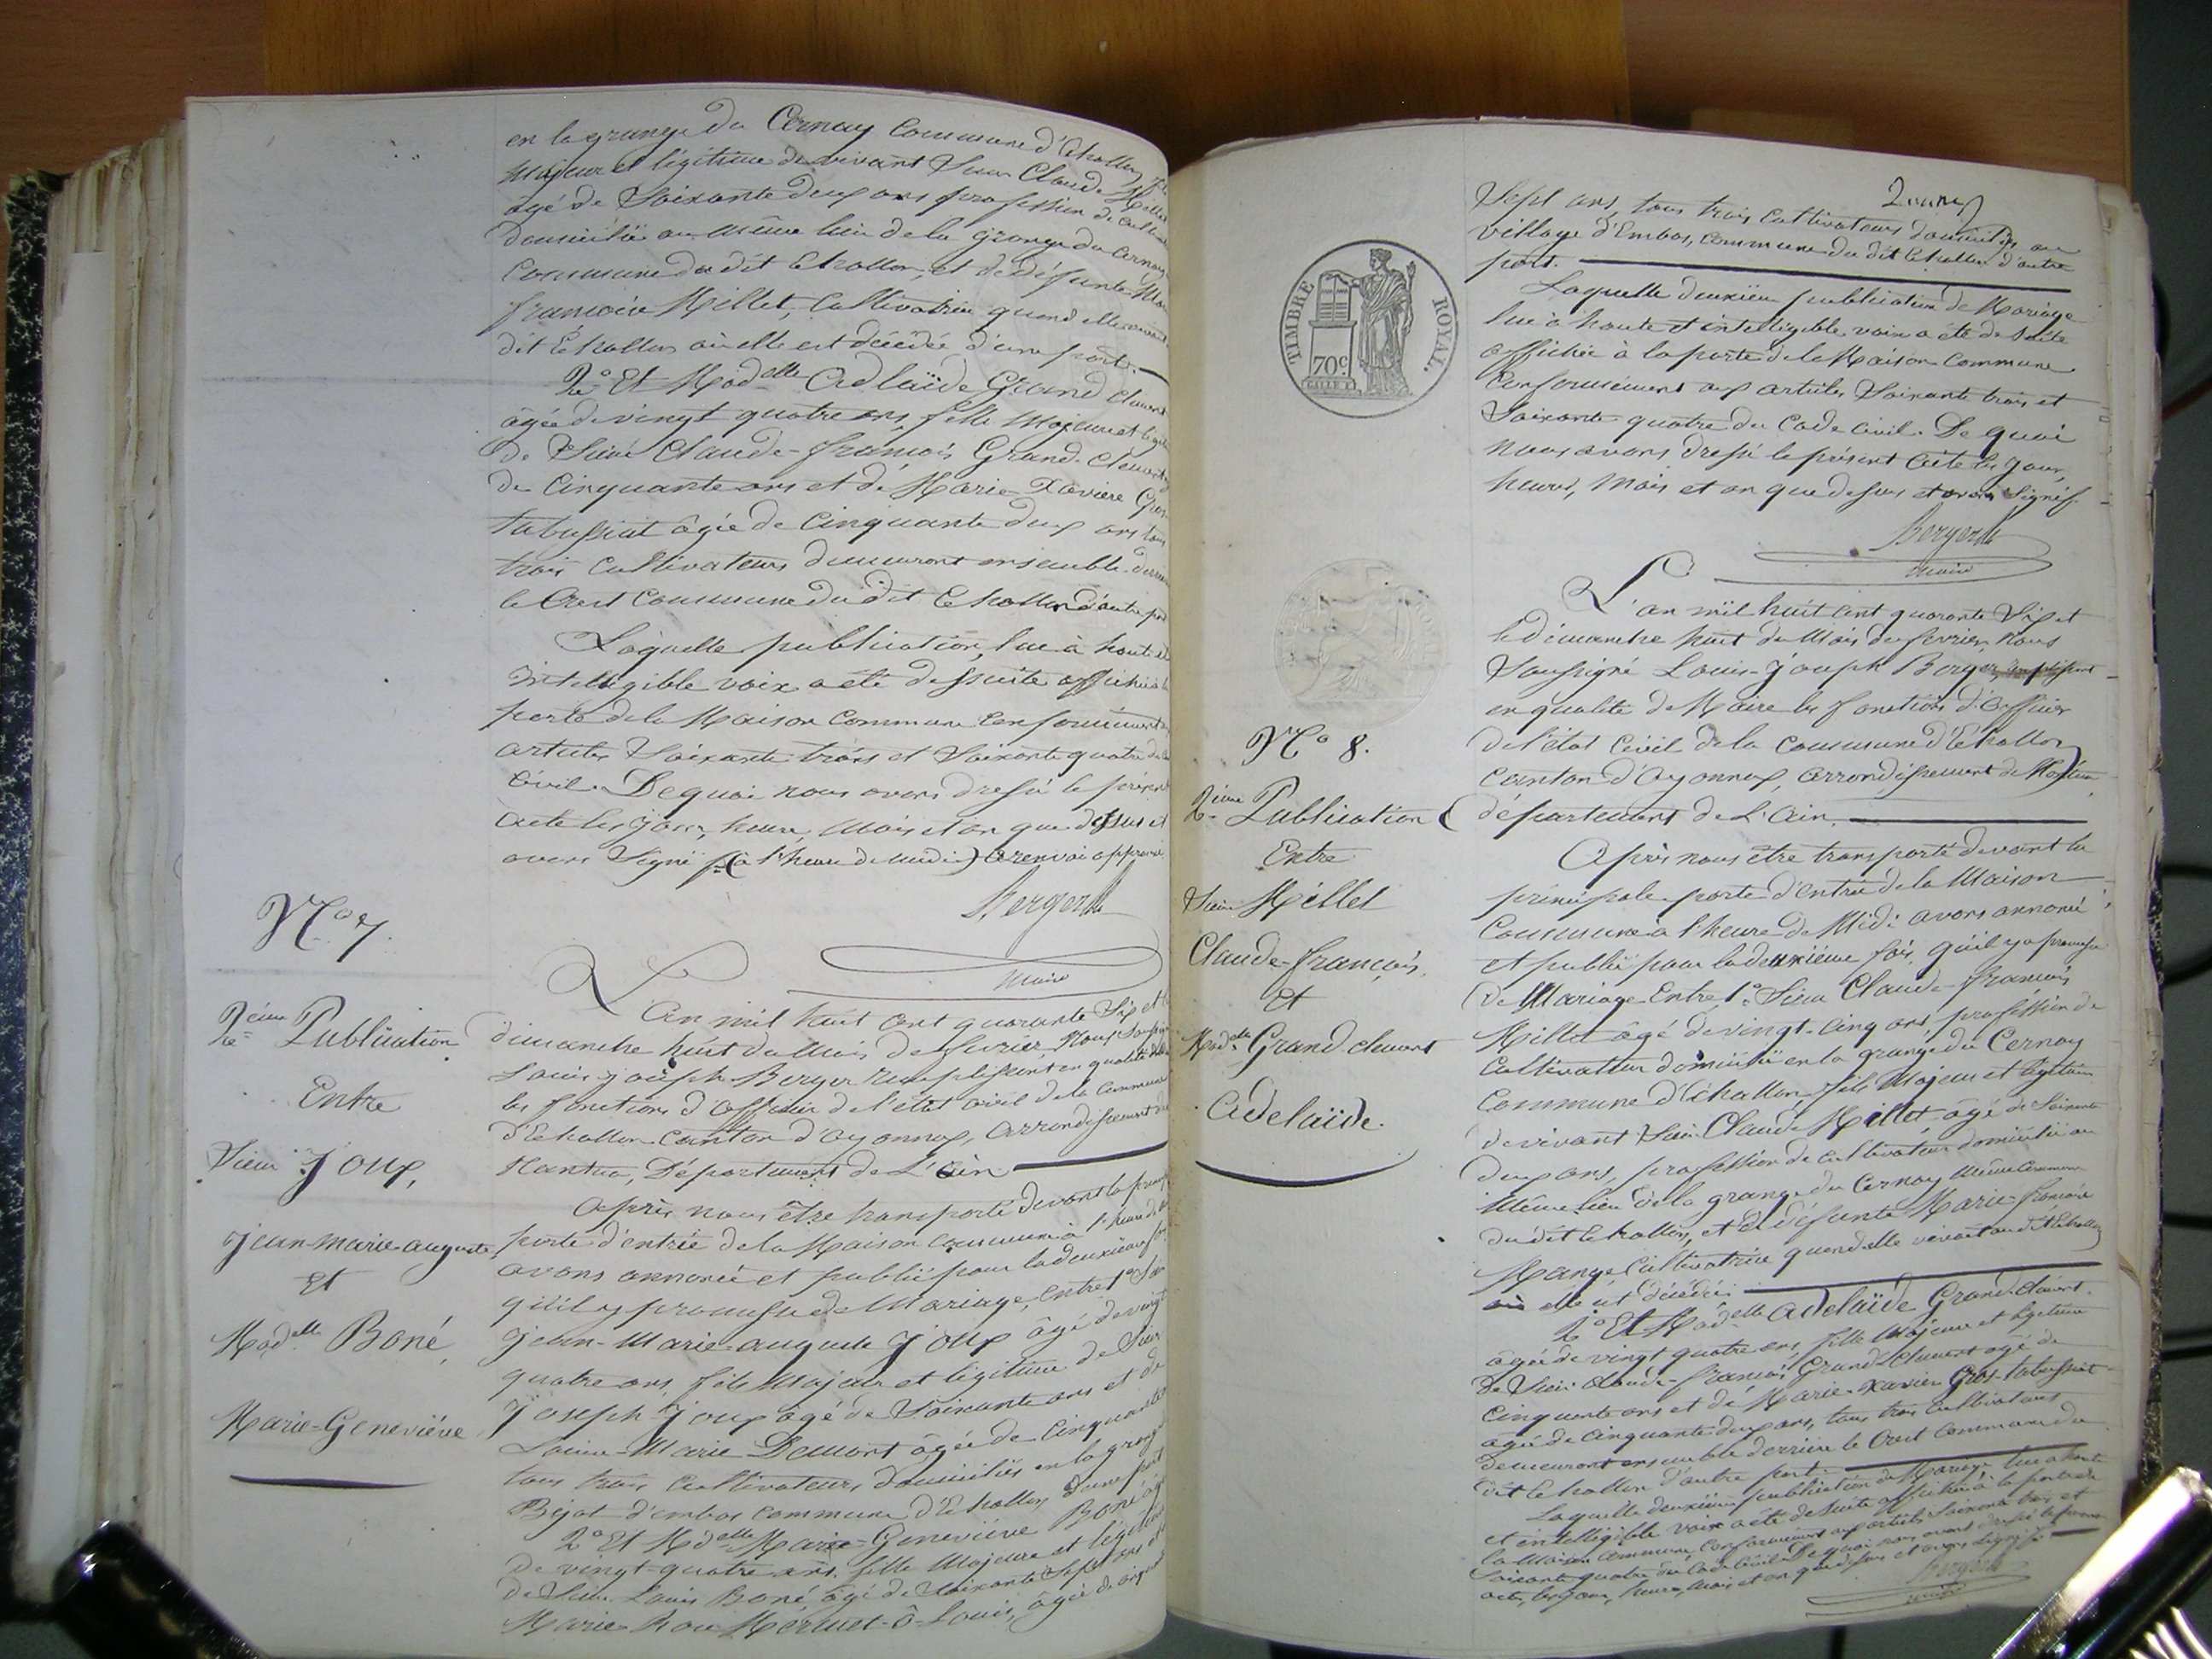 en la grange du Cernay commune d'Echallon
Majeur et légitime de vivant Sieur Claude Millet
âgé de Soixante deux ans profession de
Domicilié au même lieu de la grange du Cernay
Commune du dit Echallon, et de défunte
françoise Millet, Cultivatrice quand elle
dit Echallon où elle est décédée d'une part.
2° Et Madelle Adelaïde Grand Clement
âgée de vingt quatre ans, fille Majeure et
de Sieur Claude-françois Grand-Clement
de Cinquante ans et de Marie-Xavière Gros
tabussiat âgée de Cinquante deux ans tous
trois Cultivateurs demeurant ensemble
le Cret Commune du dit Echallon d'autre part
Laquelle publication, lue à haute et
intelligible voix a été de suite affichée
porte de la Maison Commune Conformément
articles Soixante trois et Soixante quatre du
Civil. De quoi nous avons dressé le présent
acte les jour, heure, Mois et an que dessus et
avons Signé (à l'heure de midi)
Berger
Maire
N° 7.
2eme Publication
Entre
Sieur Joux,
Jean-marie-auguste
Et
Madelle Boné
Marie-Geneviève
L'an mil huit cent quarante Six et
dimanche huit du Mois de fevrier, Nous
Louis-joseph Berger remplissant en qualité
les fonctions d'officier de l'état civil de la commune
d'Echallon canton d'Oyonnax, arrondissement de
Nantua, Département de L'Ain
Après nous être transporté devant la
porte d'entrée de la Maison commune à l'heure de
avons annoncé et publié pour la deuxième fois
qu'il y promesse de Mariage, entre 1°
Jean-Marie-auguste Joux âgé de vingt
quatre ans, fils Majeur et légitime de Sieur
Joseph Joux âgé de Soixante ans et de
Marie Demont âgée de Cinquante
tous trois Cultivateurs domiciliés en la grange
d'embos commune d'Echallon d'une part
2° Et Madelle Marie-Geneviève Boné
de vingt-quatre ans, fille Majeure et légitime
de Sieur Louis Boné, âgé de Soixante Sept ans et
Marie âgée de
Sept ans, tous trois cultivateurs domiciliés au
village d'Embos, commune du dit Echallon d'autre
part.
TIMBRE ROYAL.
70c
Laquelle deuxième publication de Mariage
lue à haute et intelligible voix a été de Suite
affichée à la porte de la Maison Commune
Conformément aux articles Soixante trois et
Soixante quatre du Code Civil. De quoi
nous avons dressé le présent acte les jour,
heures, Mois et an que dessus et avons Signé
Berger
Maire
N° 8.
2eme Publication
Entre
Sieur Millet
Claude-françois.
Et
Madelle Grand clement
Adelaïde.
L'an mil huit cent quarante Six et
le dimanche huit du Mois de fevrier, Nous
Soussigné Louis-Joseph Berger
en qualité de Maire les fonctions d'Officier
de l'état Civil de la Commune d'Echallon
Canton d'Oyonnax, arrondissement de Nantua
département de L'Ain.
Après nous être transporté devant la
principale porte d'entrée de la Maison
Commune à l'heure de Midi avons annoncé
et publié pour la deuxième fois, qu'il y a promesse
de Mariage Entre 1° Sieur Claude-françois
Millet âgé de vingt-Cinq ans, profession de
Cultivateur domicilié en la grange du Cernay
Commune d'Echallon, fils Majeur et légitime
de vivant Sieur Claude Millet âgé de Soixante
deux ans, profession de cultivateur domicilié au
Même lieu de la grange du Cernay Même Commune
du dit Echallon, et de défunte Marie-françoise
Cultivatrice quand elle vivait au dit Echallon
où elle est décédée
2° Et Madelle Adelaïde Grand Clement.
âgée de vingt quatre ans, fille Majeure et légitime
de Sieur Claude-françois Grand-Clement âgé de
Cinquante ans et de Marie-Xavière Gros-tabussiat
âgée de Cinquante deux ans, tous trois Cultivateurs
demeurant ensemble derrière le Cret Commune du
dit Echallon d'autre part.
Laquelle deuxième publication de Mariage lue à haute
et intelligible voix a été de suite affichée à la porte de
la Maison Commune, Conformément aux articles Soixante trois et
Soixante quatre du Code Civil. De quoi nous avons dressé le présent
acte, les jour, heure, Mois et an que dessus et avons Signé
Berger
Maire